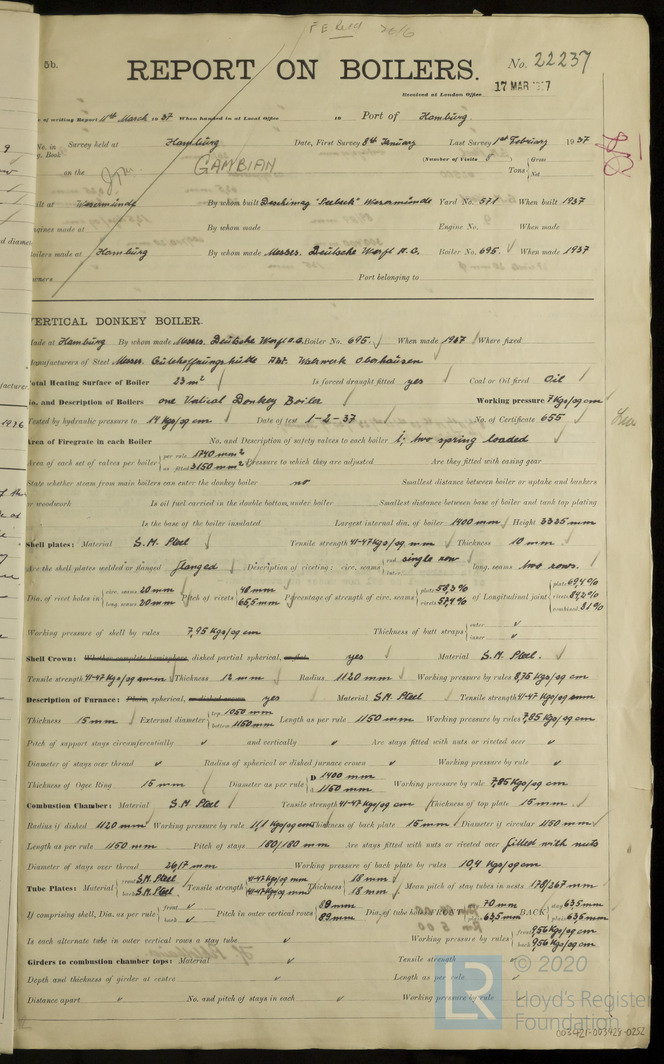 FE Recd 20/6
5b.
REPORT ON BOILERS.
No. 22237
17 MAR 1937
Received at London Office
of writing Report 11th March 1937 When handed in at Local Office 10 Port of Hamburg
No. in Survey held at Hamburg Date, First Survey 8th January Last Survey 1st February 1937
Book. (Number of Visits 5)
on the GAMBIAN Tons Gross Net
ilt at Wesermünde By whom built Deschimag "Seebeck" Wesermünde Yard No. 571 When built 1937
Engines made at By whom made Engine No. When made
oilers made at Hamburg By whom made Messrs. Deutsche Werft A.G. Boiler No. 695. When made 1937
wners Port belonging to
VERTICAL DONKEY BOILER.
Made at Hamburg By whom made Messrs. Deutsche Werft A.G. Boiler No. 695. When made 1937 Where fixed
Manufacturers of Steel Messrs. Gutehoffnungshütte Abt. Walzwerk Oberhausen
Total Heating Surface of Boiler 23 m² Is forced draught fitted yes Coal or Oil fired Oil
No. and Description of Boilers one Vertical Donkey Boiler Working pressure 7 Kgs/sq cm
Tested by hydraulic pressure to 14 Kgs/sq cm Date of test 1-2-37 No. of Certificate 655
Area of Firegrate in each Boiler No. and Description of safety valves to each boiler 1; two spring loaded
Area of each set of valves per boiler per rule 1740 mm² as fitted 3150 mm² Pressure to which they are adjusted Are they fitted with easing gear
State whether steam from main boilers can enter the donkey boiler no Smallest distance between boiler or uptake and bunkers
or woodwork Is oil fuel carried in the double bottom under boiler Smallest distance between base of boiler and tank top plating
Is the base of the boiler insulated Largest internal dia. of boiler 1400 mm Height 3325 mm
Shell plates: Material S.M. Steel Tensile strength 41-47 Kgs/sq mm Thickness 10 mm
Are the shell plates welded or flanged flanged Description of riveting: circ. seams end single row long. seams two rows.
Dia. of rivet holes in circ. seams 20 mm long. seams 20 mm Pitch of rivets 48 mm 65,5 mm Percentage of strength of circ. seams plate 58,3 % rivets 57,4 % of Longitudinal joint plate 69,4 % rivets 84,2 % combined 81 %
Working pressure of shell by rules 7,95 Kgs/sq cm Thickness of butt straps outer inner
Shell Crown: Whether complete hemisphere, dished partial spherical, or flat yes Material S.M. Steel.
Tensile strength 41-47 Kgs/sq mm Thickness 12 mm Radius 1120 mm Working pressure by rules 8,75 Kgs/sq cm
Description of Furnace: Plain, spherical, or dished crown yes Material S.M. Steel Tensile strength 41-47 Kgs/sq mm
Thickness 15 mm External diameter top 1050 mm bottom 1150 mm Length as per rule 1150 mm Working pressure by rules 7,85 Kgs/sq cm
Pitch of support stays circumferentially and vertically Are stays fitted with nuts or riveted over
Diameter of stays over thread Radius of spherical or dished furnace crown Working pressure by rule
Thickness of Ogee Ring 15 mm Diameter as per rule D 1400 mm d 1150 mm Working pressure by rule 7,85 Kgs/sq cm
Combustion Chamber: Material S.M. Steel Tensile strength 41-47 Kgs/sq cm Thickness of top plate 15 mm.
Radius if dished 1120 mm Working pressure by rule 11,1 Kgs/sq cm Thickness of back plate 15 mm Diameter if circular 1150 mm
Length as per rule 1150 mm Pitch of stays 180/180 mm Are stays fitted with nuts or riveted over fitted with nuts
Diameter of stays over thread 26,17 mm Working pressure of back plate by rules 10,4 Kgs/sq cm
Tube Plates: Material front S.M. Steel back S.M. Steel Tensile strength 41-47 Kgs/sq mm 41-47 Kgs/sq mm Thickness 18 mm 18 mm Mean pitch of stay tubes in nests 178/267 mm
If comprising shell, Dia. as per rule front back Pitch in outer vertical rows 89 mm 89 mm Dia. of tube holes FRONT stay 70 mm plain 63,5 mm BACK stay 63,5 mm plain 63,5 mm
Is each alternate tube in outer vertical rows a stay tube Working pressure by rules front 9,56 Kgs/sq cm back 9,56 Kgs/sq cm
Girders to combustion chamber tops: Material Tensile strength
Depth and thickness of girder at centre Length as per rule
Distance apart No. and pitch of stays in each Working pressure by rule
LR © 2020
Lloyd's Register
Foundation
003421-003428-0252